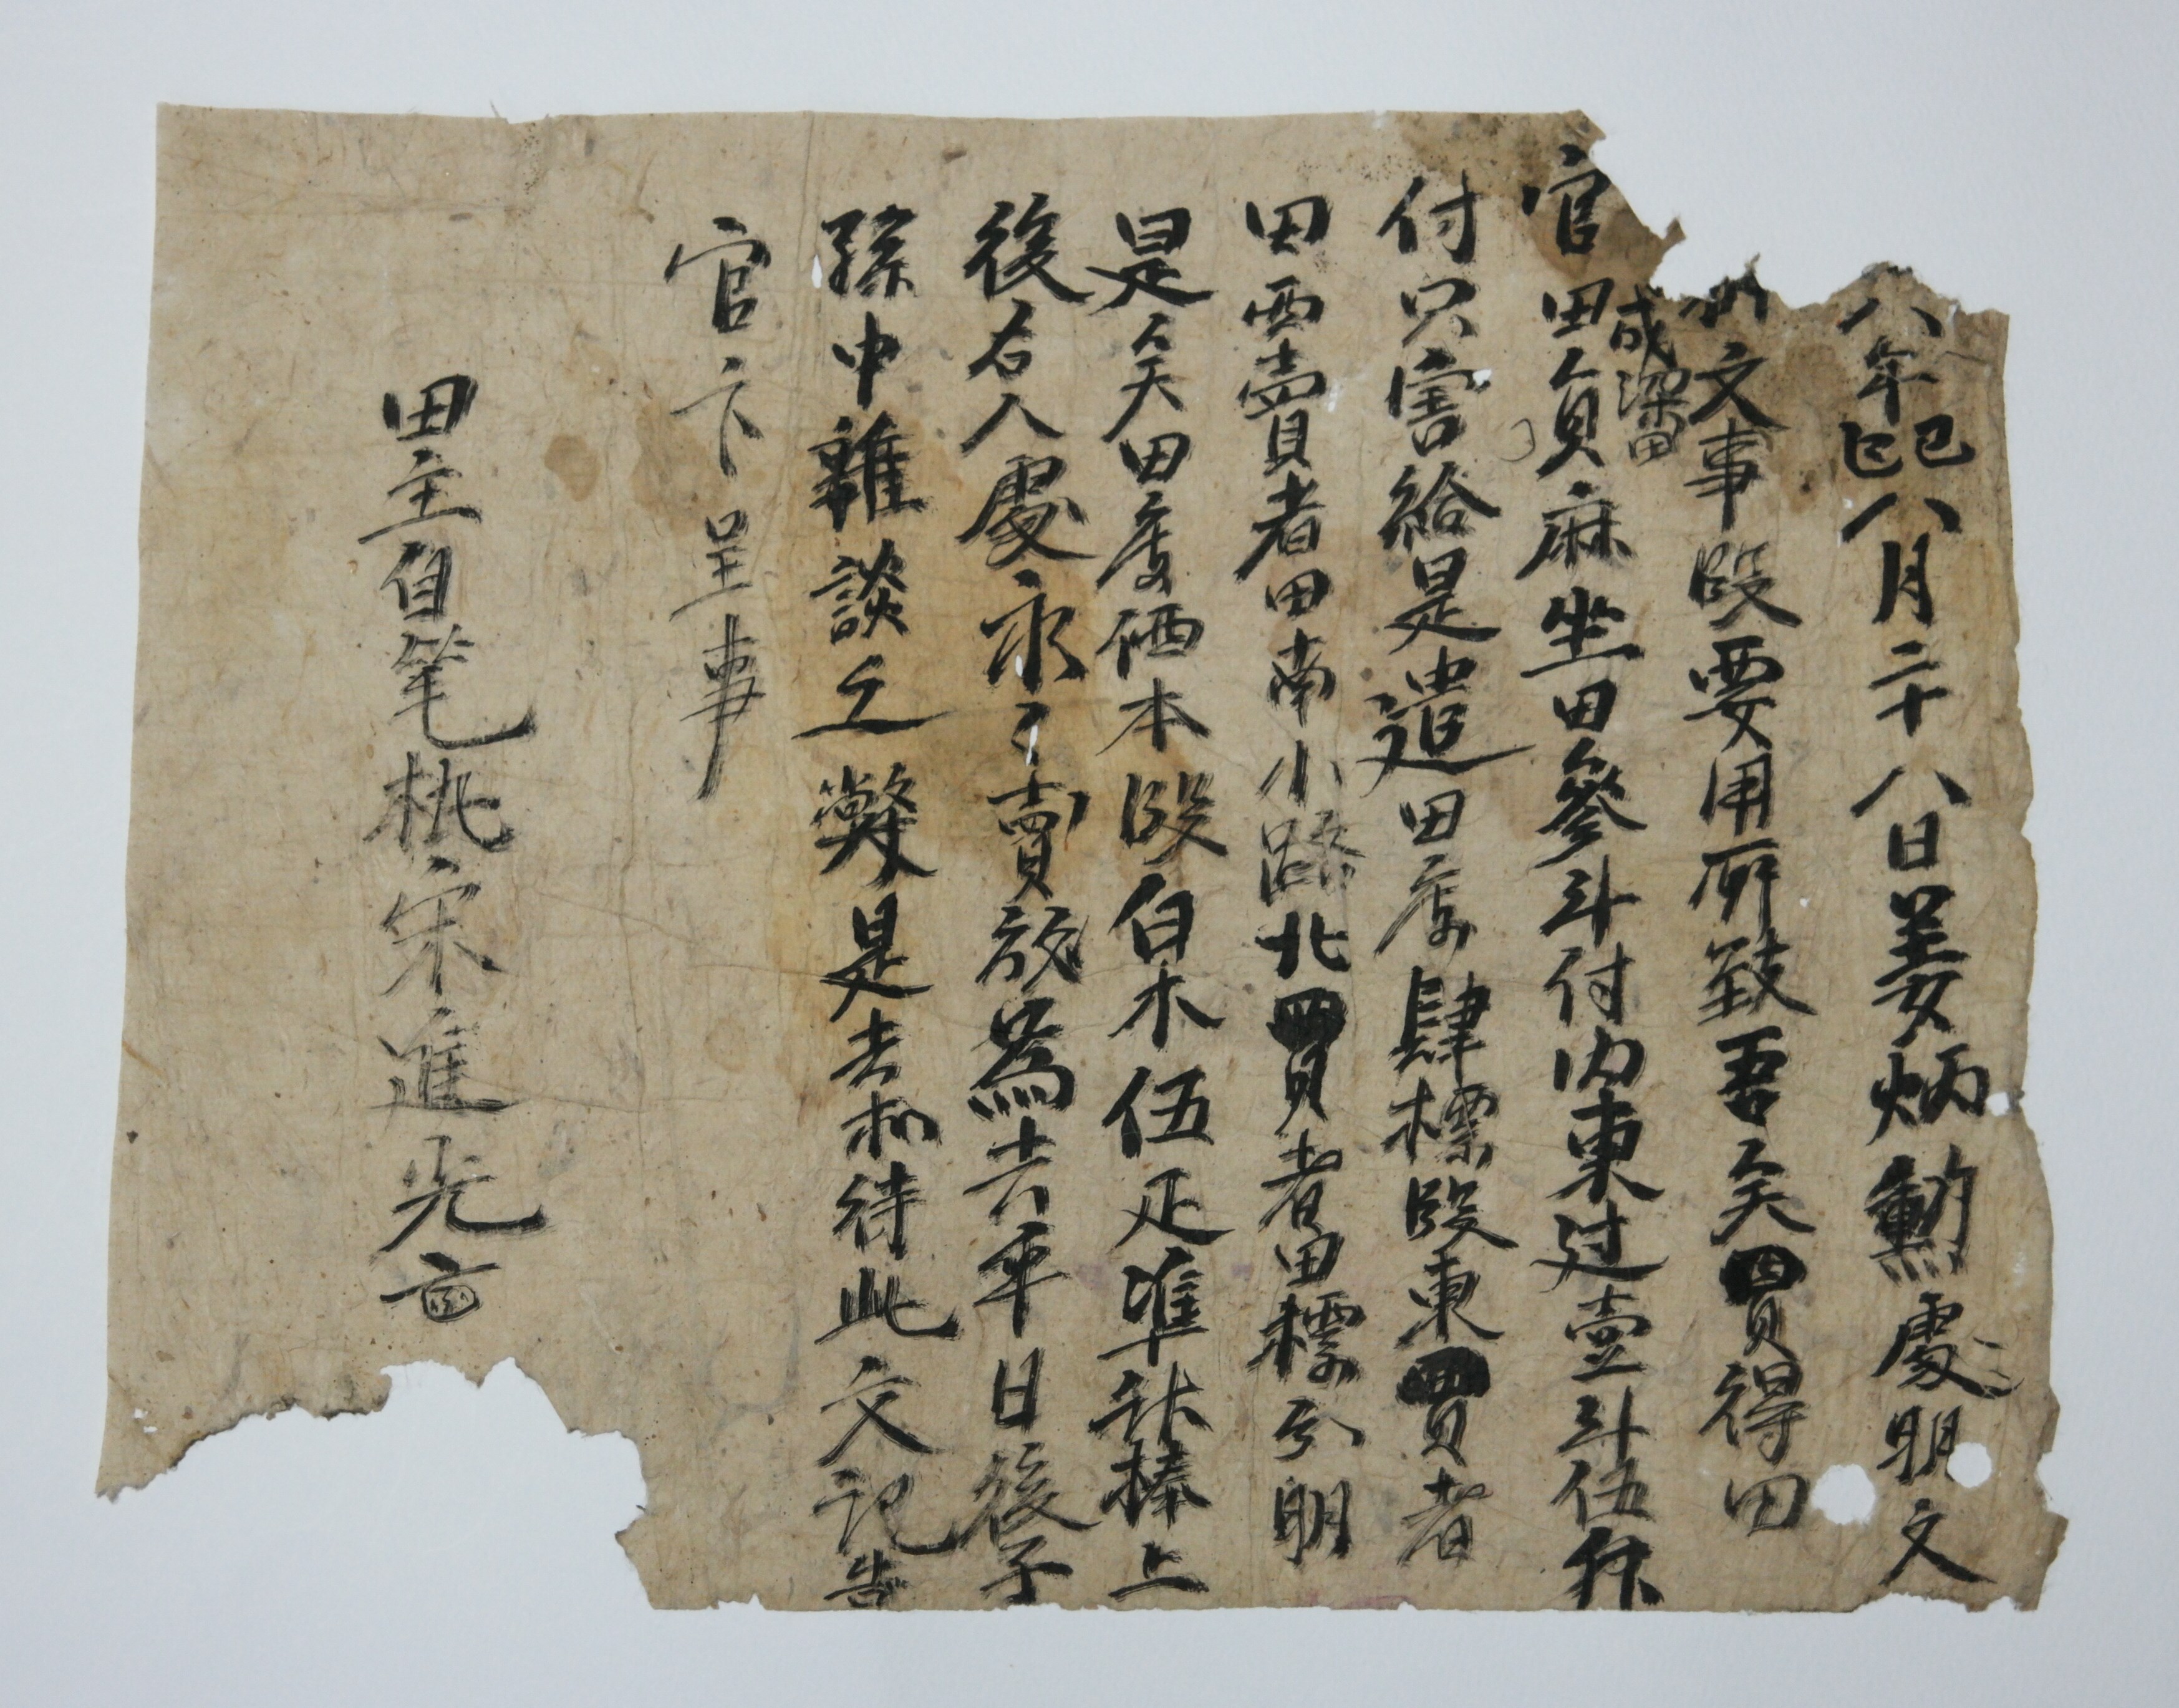 八年己巳八月二十八日姜炳勳處明文
文事段要用所致吾矣買得田
咸深田
官田員麻坐田參斗付內東边壹斗伍升
付只害給是遣田庫肆標段東買者
田西賣者田南小路北買者田標分明
是矣田庫価本段白木伍疋準計捧上
後右人處永々賣放爲去乎日後子
孫中雜談乙弊是去未待此文記告
官卞呈事
田主自筆桃宋進光